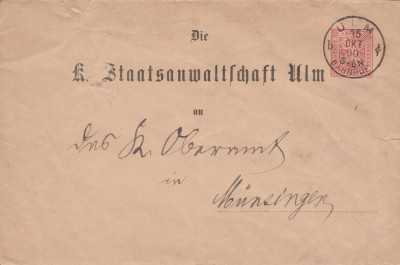 Die
K. Staatsanwaltschaft Ulm
an
das K. Oberamt
in
Münsingen
ULM
b
15
OKT
90
5-6N
BAHNHOF